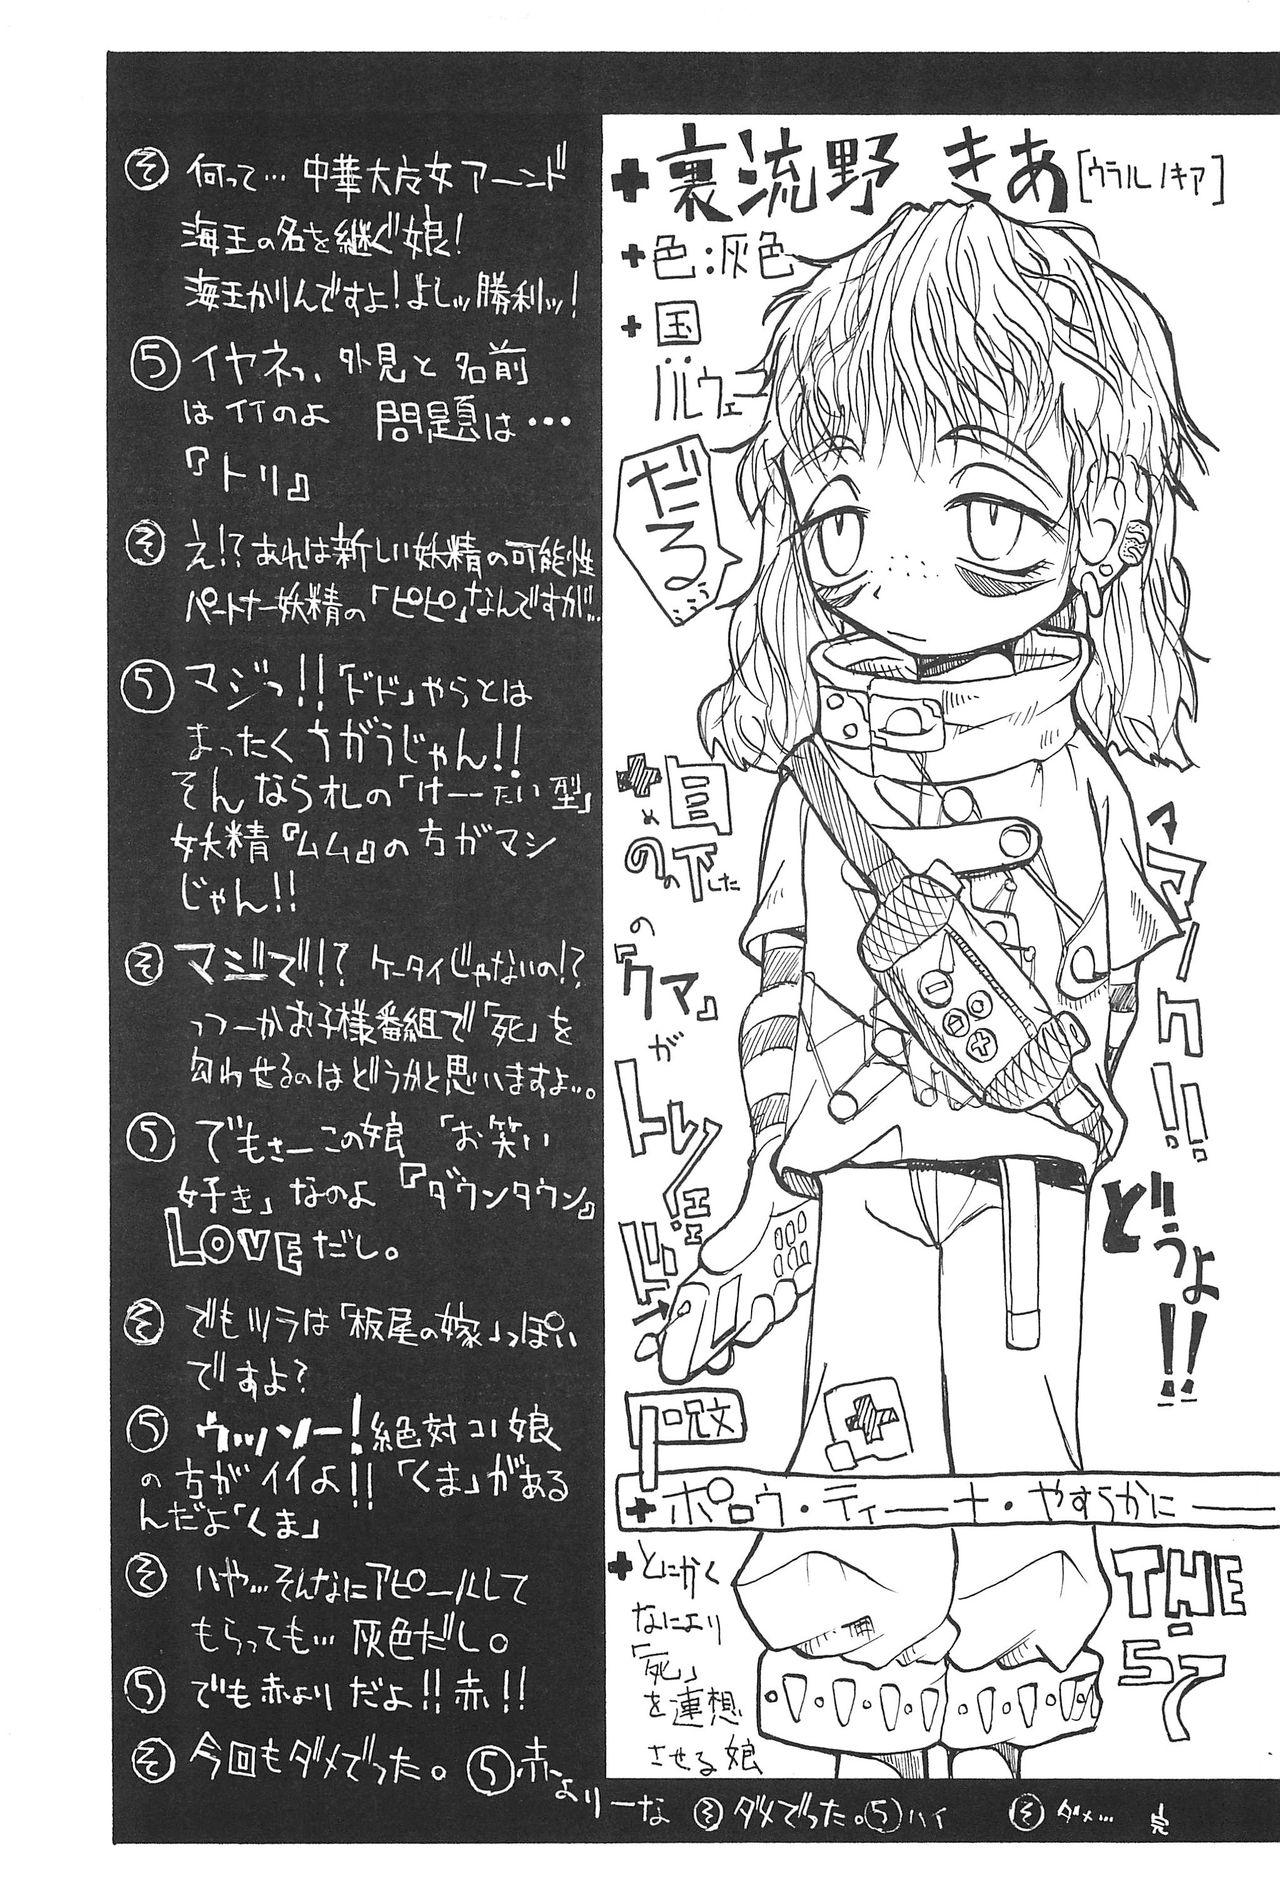 ✚裏流野 きあ[ウラル ノキア]
✚色:灰色
✚国:ノルウェー
だるぅぅ…
✚目の下の『クマ』がトレンド
マーク!!どうよ!!
呪文
✚ポロウ・ティーナ・やすらかに――
✚とにかく
なにより
「死」
を連想
させる娘
THE
57
そ 何って…中華大好女アーンド
海王の名を継ぐ娘!
海王かりんですよ!よしッ勝利ッ!
5 イヤネっ、外見と名前
はイイのよ 問題は…
『トリ』
そ え!?あれは新しい妖精の可能性
パートナー妖精の「ピピ」なんですが…
5 マジっ!!「ドド」やらとは
まったくちがうじゃん!!
そんなられの「けーたい型」
妖精『ムム』の方がマシ
じゃん!!
そ マジで!?ケータイじゃないの!?
っつーかお子様番組で「死」を
匂わせるのはどうかと思いますよ…。
5 でもさーこの娘「お笑い
好き」なのよ『ダウンタウン』
LOVEだし。
そ でもツラは「板尾の嫁」っぽい
ですよ?
5 ウッソー!絶対コノ娘
の方がイイよ!!「くま」がある
んだよ「くま」
そ いや…そんなにアピールして
もらっても…灰色だし。
5 でも赤よりだよ!!赤!!
そ 今回もダメでった。5 赤よりーな
そ ダメでった。5 ハイ
そ ダメ… 完